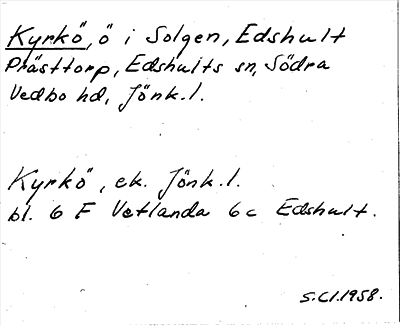 Kyrkö, ö i Solgen, Edshult
Prästtorp, Edshults sn, Södra
Vedbo hd, Jönk.l.
Kyrkö, ek. Jönk.l.
bl. 6 F Vetlanda 6c Edshult.
S.Cl.1958.